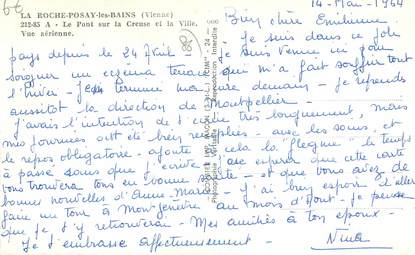 6€
LA ROCHE-POSAY-les-BAINS (Vienne)
212-85 A - Le Pont sur la Creuse et la Ville.
Vue aérienne.
14 - Mai - 1964
Bien chère Emilienne
Je suis dans ce joli
pays depuis le 24 Avril - Je suis venue ici pour
soigner un eczéma tenace qui m'a fait souffrir tout
l'hiver - Je termine ma cure demain - Je reprends
aussitôt la direction de Montpellier -
J'avais l'intention de t'écrire très longuement, mais
mes journées ont été bien remplies - avec les soins, et
le repos obligatoire - ajoute à cela la "flegme" - le temps
a passé sans que j'écrive - J'ose espérer que cette carte
vous trouvera tous en bonne santé - et que vous avez de
bonnes nouvelles d'Anne-Marie - J'ai bien espoir d'aller
faire un tour à Mongenèvre au mois d'Août - Je pense
que je t'y retrouverai - Mes amitiés à ton époux -
Je t'embrasse affectueusement - Nina